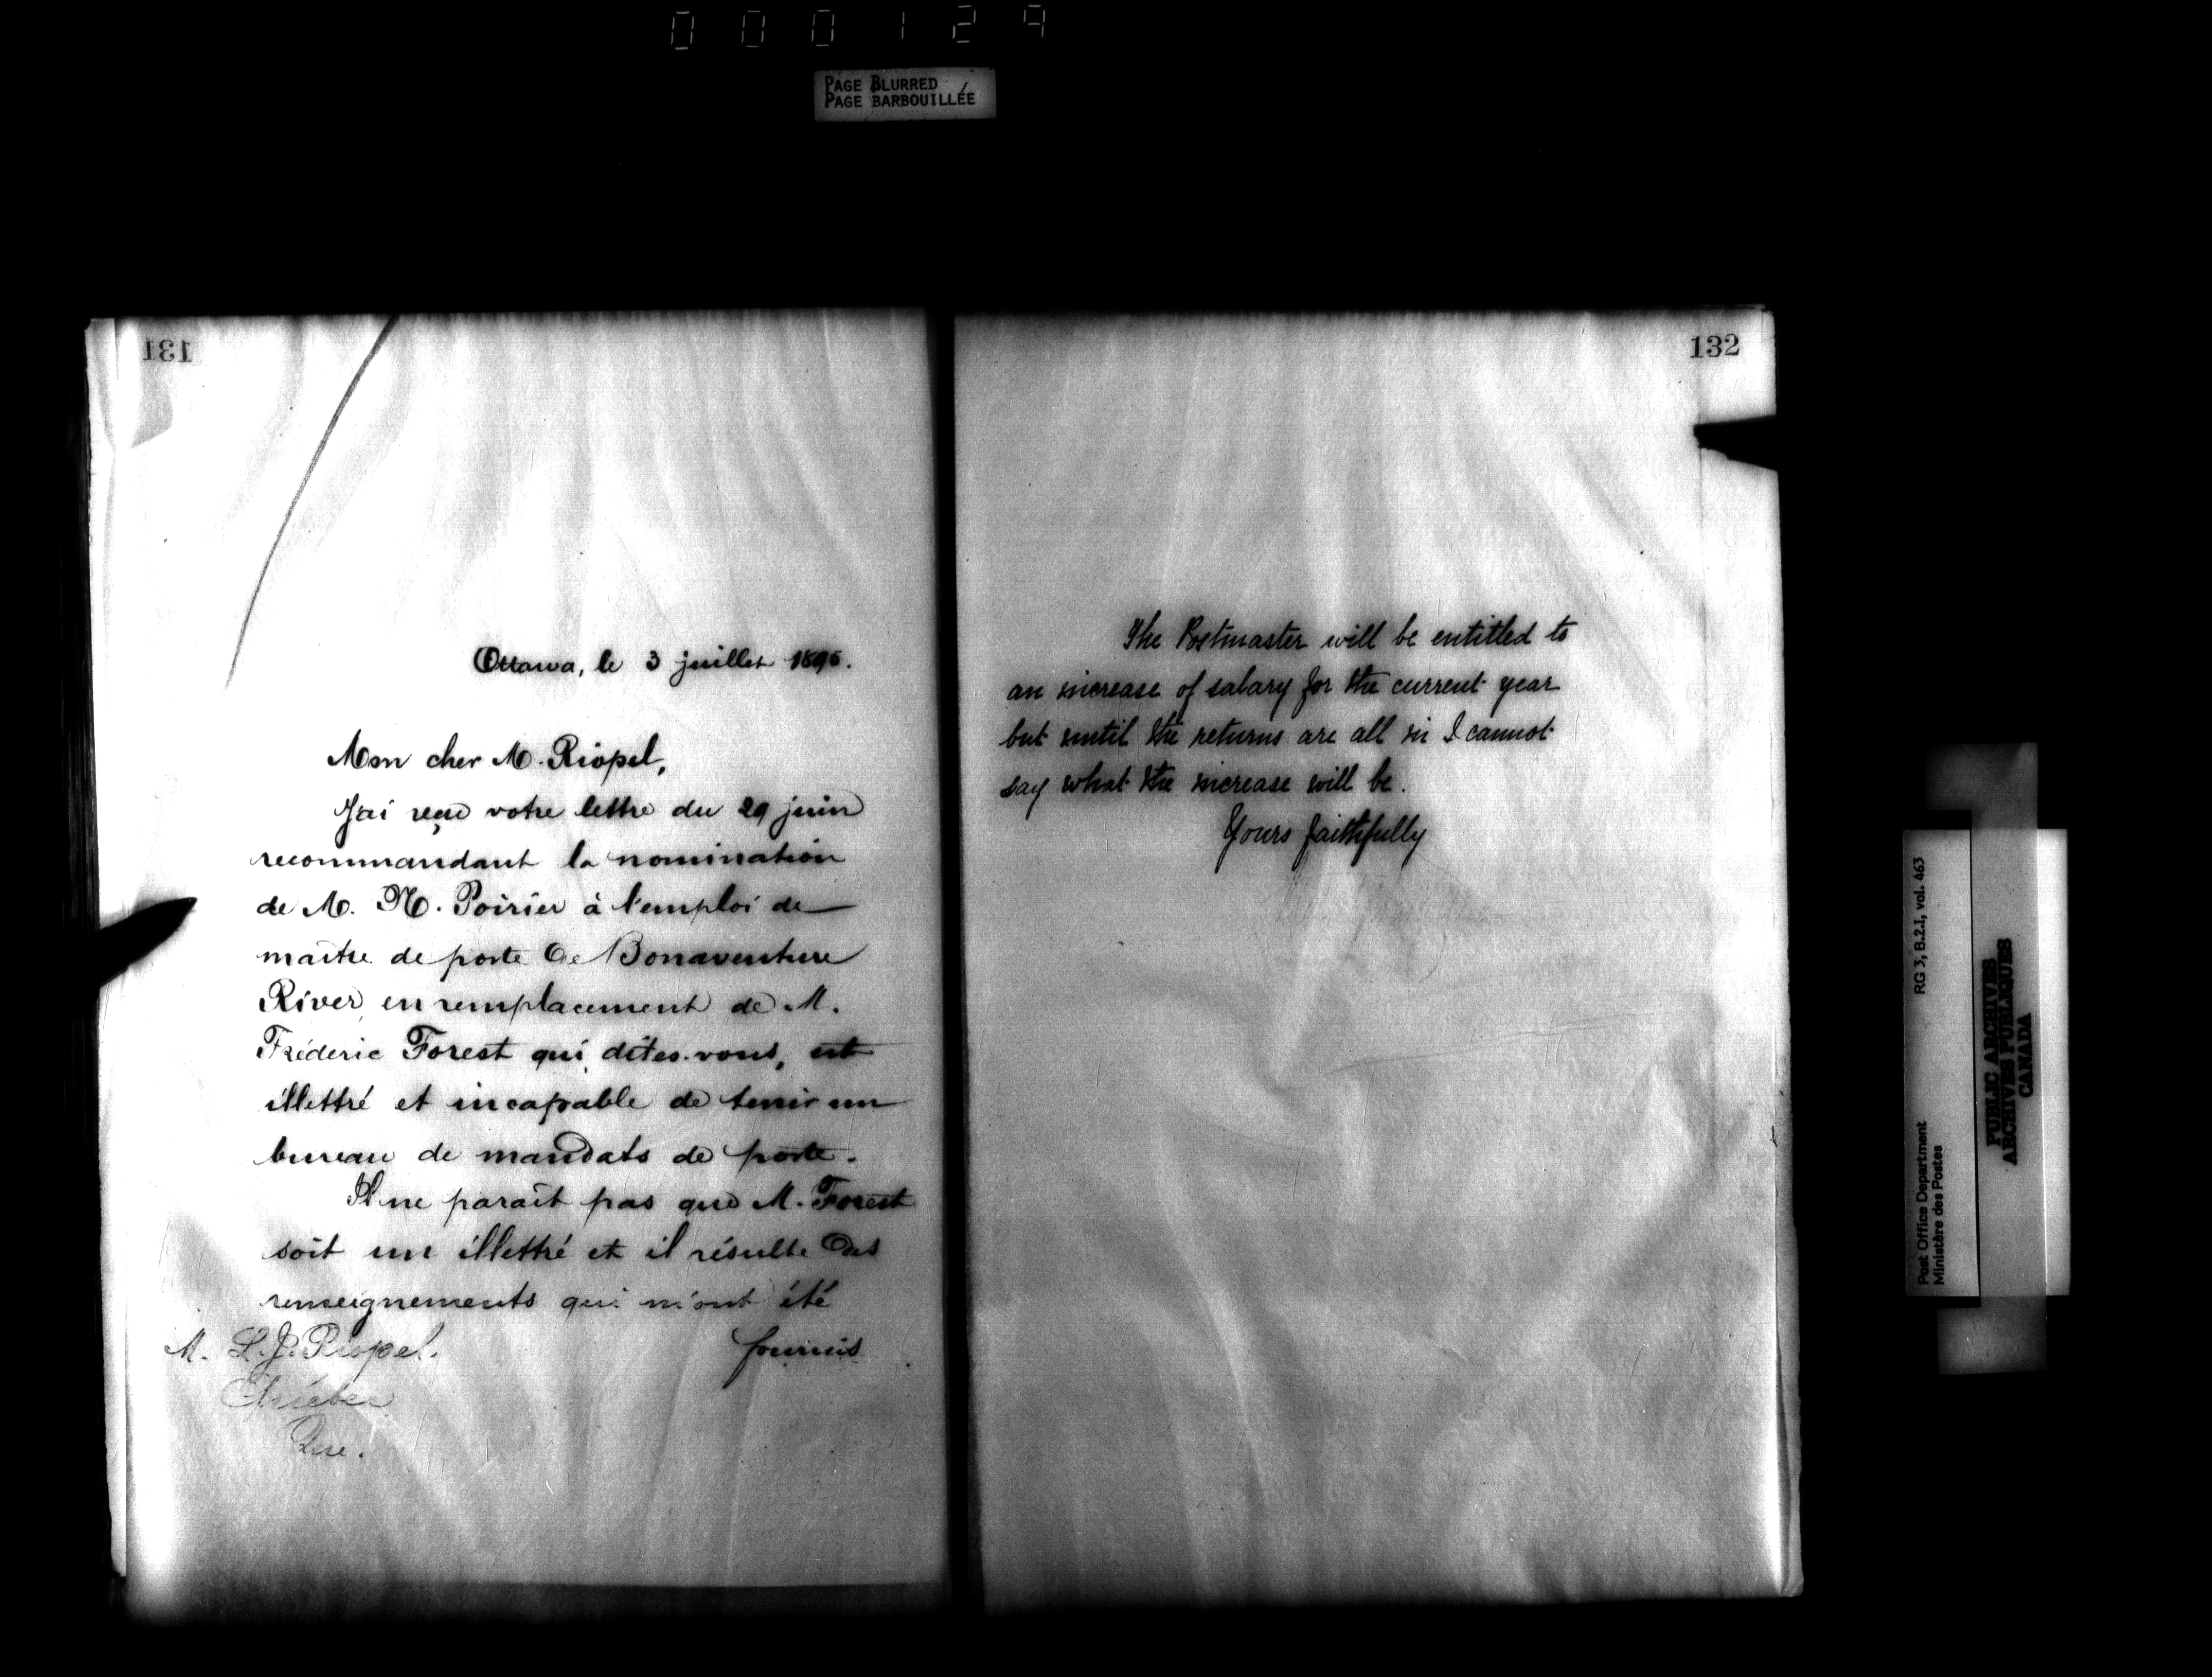 000129
PAGE BLURRED
PAGE BARBOUILLÉE
131
Ottawa, le 3 juillet 1896.
Mon cher M. Riopel,
J'ai reçu votre lettre du 29 juin
recommandant la nomination
de M. N. Poirier à l'emploi de
maître de poste de Bonaventure
River en remplacement de M.
Fréderic Forest qui, dites-vous, est
illettré et incapable de tenir un
bureau de mandats de poste.
Il ne paraît pas que M. Forest
soit un illettré et il résulte des
renseignements qui m'ont été
fournis
M. L. J. Riopel.
Québec
Que.
132
The Postmaster will be entitled to
an increase of salary for the current year
but until the returns are all in I cannot
say what the increase will be.
Yours faithfully
RG 3, B.2.I, vol. 463
Post Office Department
Ministère des Postes
PUBLIC ARCHIVES
ARCHIVES PUBLIQUES
CANADA